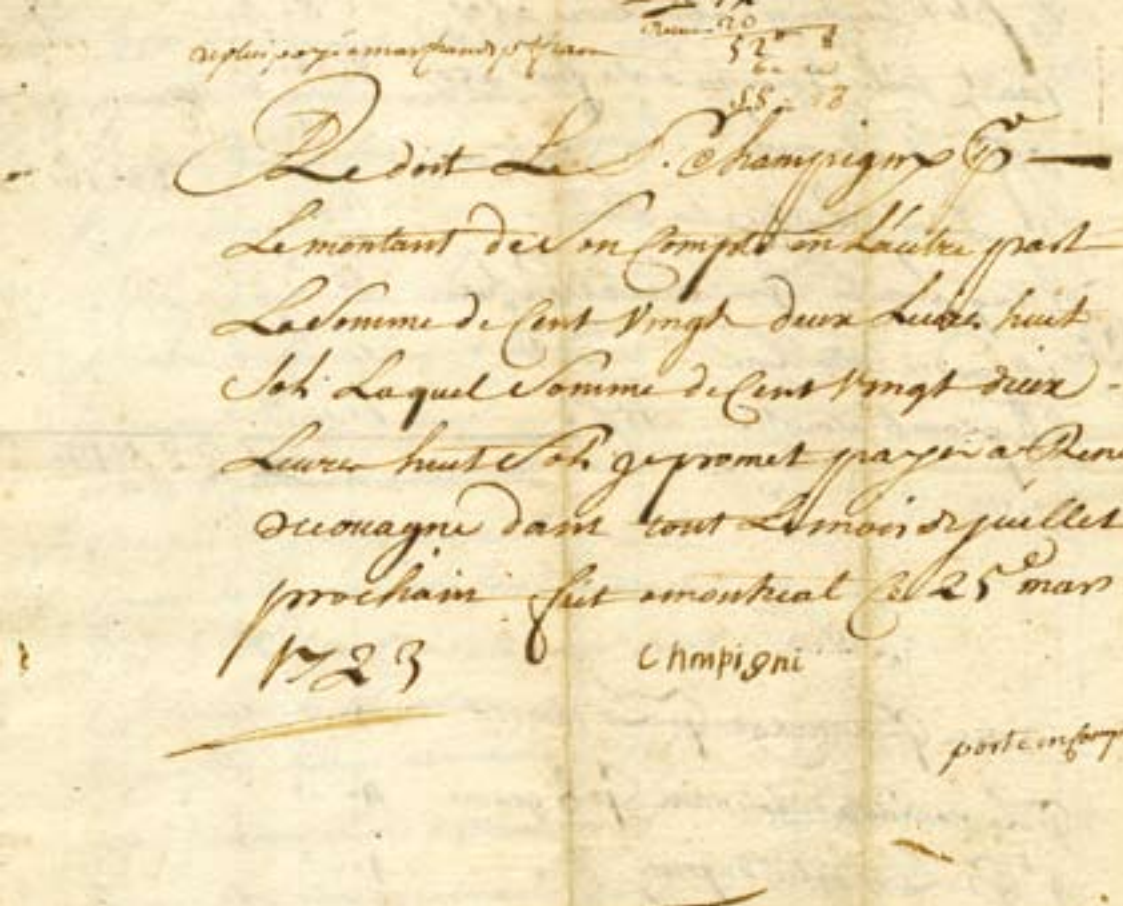 20
52 8
Redoit Le S. Champigny pr
Le montant de Son Compte en Lautre part
La Somme de Cent Vingt deux Livres huit
Sols Laquel Somme de Cent Vingt deux
Livres huit Sols je promet payer a Rene
decouagne dans tout Le mois de juillet
prochain fait amontreal Ce 25e mars
1723 Chmpigni
porte en Comp